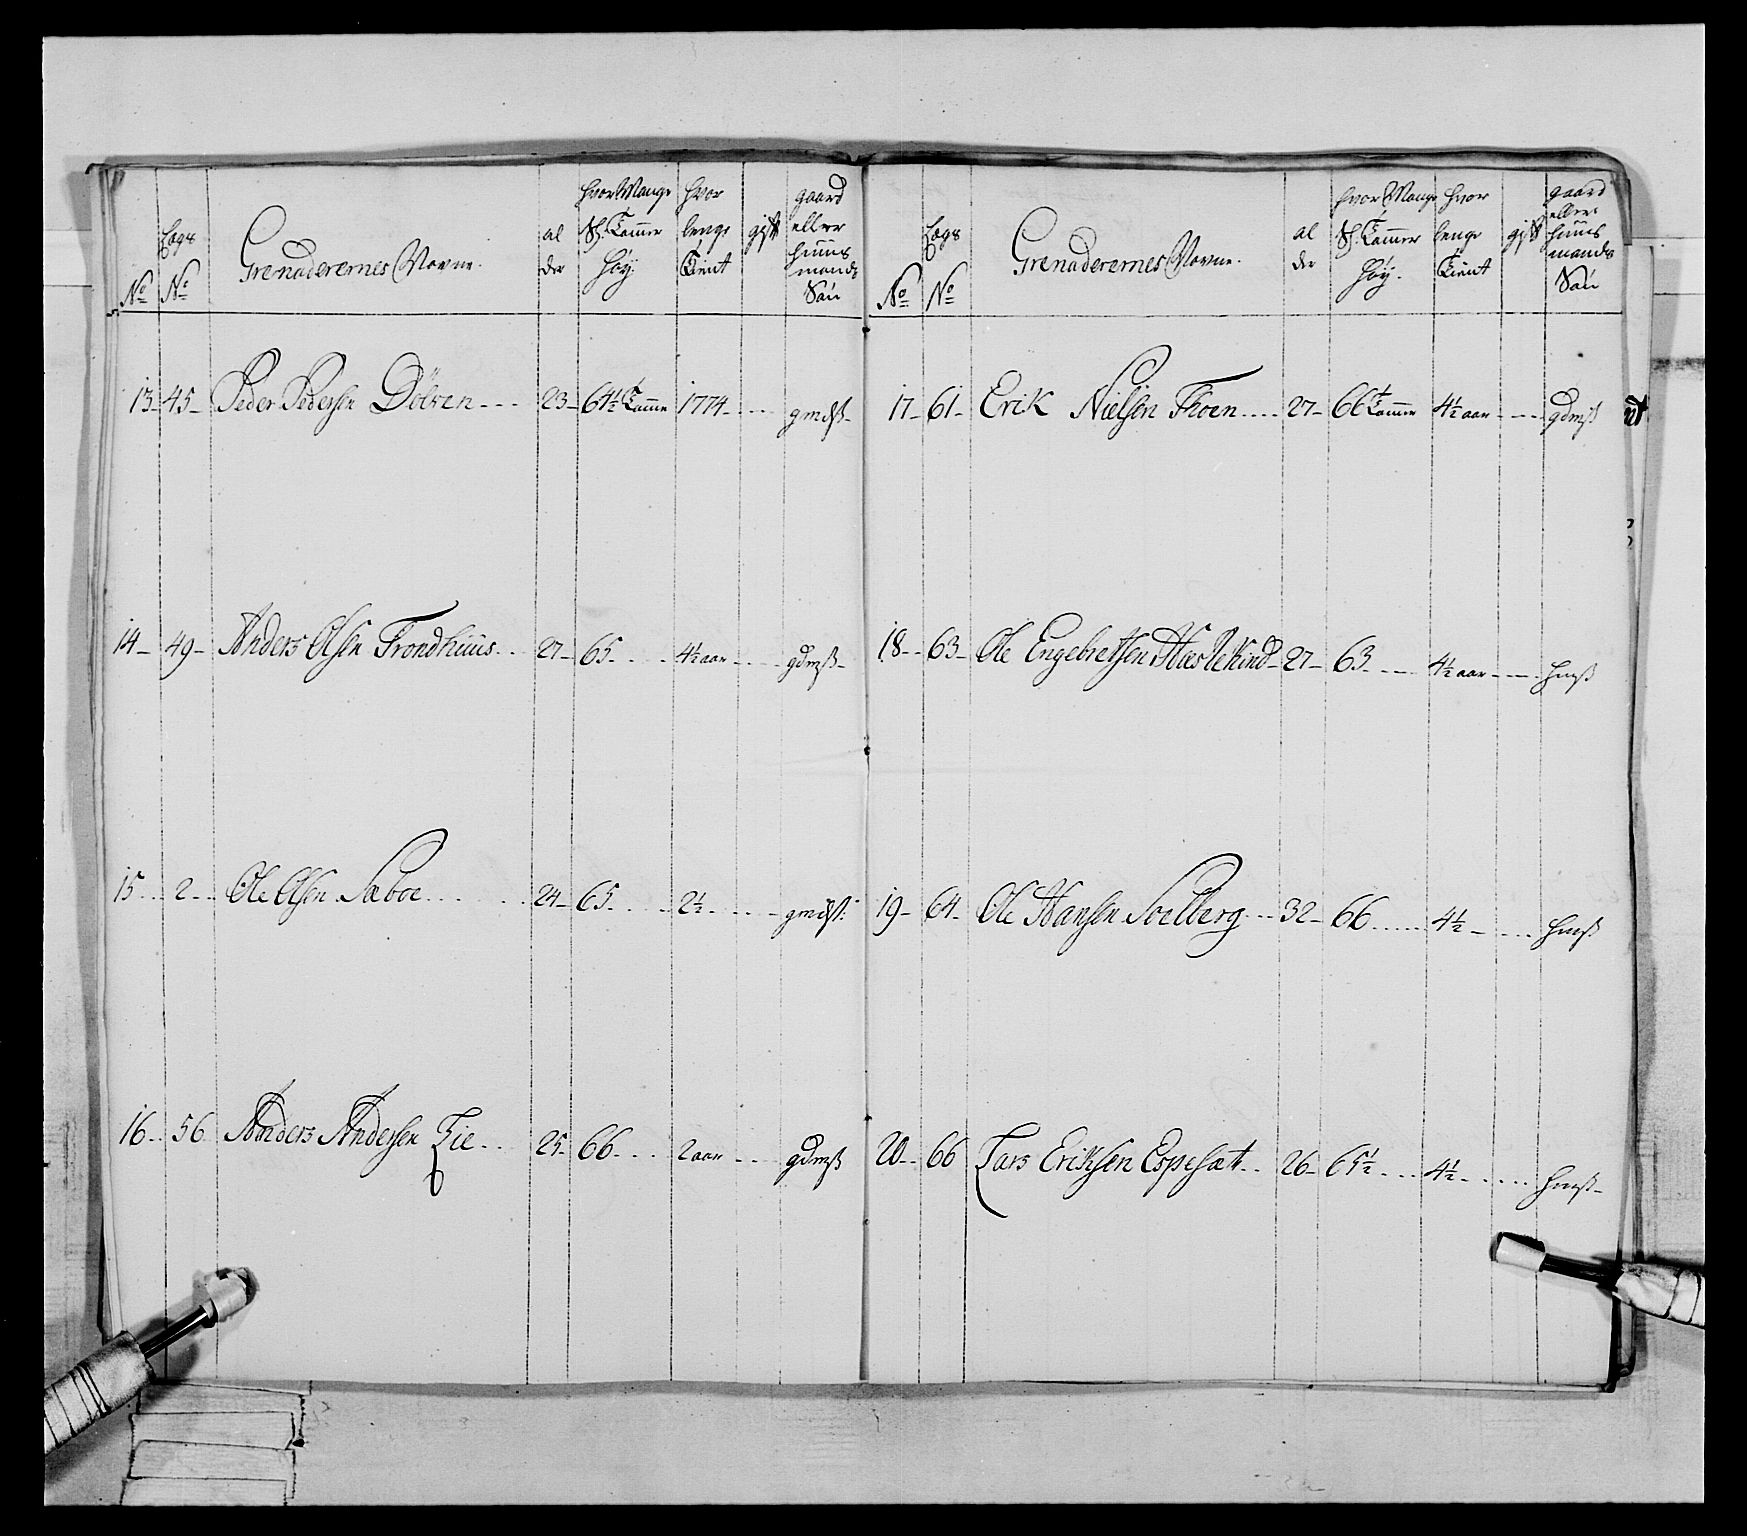 No
Lægs No
Grenaderernes Navne.
al der
hvor Mange Sl. Tommer høy.
hvor lenge Tient
gift
gaard eller huus mands Søn
13 - 45 - Peder Pedersen Döven - - - 23 - 64½ Tomme 1774 - - - gmdß -
14 - 49 - Anders Olsen Trondhuus - - 27 - 65 - - - 4½ aar - - - gdmß -
15 - - 2 - - Ole Olsen Sæboe - - - 24 - 65 - - - 2½ - - - gmdß.
16 - - 56 Anders Andersen Lie - - 25 - 66 - - - 2 aar - - - gdmß
No
Lægs No
Grenaderernes Navne.
al der
hvor Mange Sl. Tommer høy.
hvor lenge Tient
gift
gaard eller huus mands Søn
17 - 61 - Erik Nielsen Thoen - - - 27 - 66½ Tommer 4½ aar - - - gdmß
18 - - 63 - Ole Engebretsen Haslekind - 27 - 63 - - - 4½ aar - - - hmß
19 - 64 - Ole Hansen Soelberg - - - 32 - 66 - - - 4½ - - - hmß
20 - - 66 Lars Eriksen Espesæt - - 26 - 65½ - - - 4½ - - - hmß -